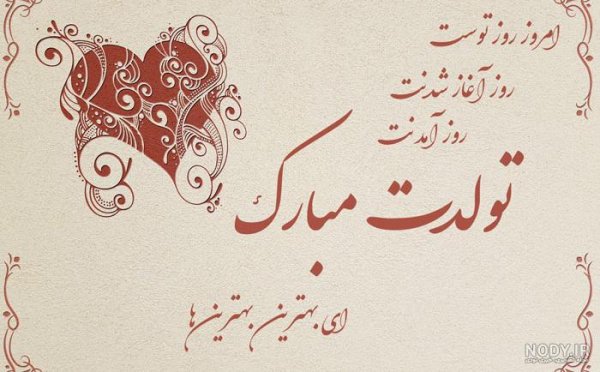 امروز روز توست
روز آغاز شدنت
روز آمدنت
تولدت مبارک
ای بهترین بهترین‌ها
NODY.IR